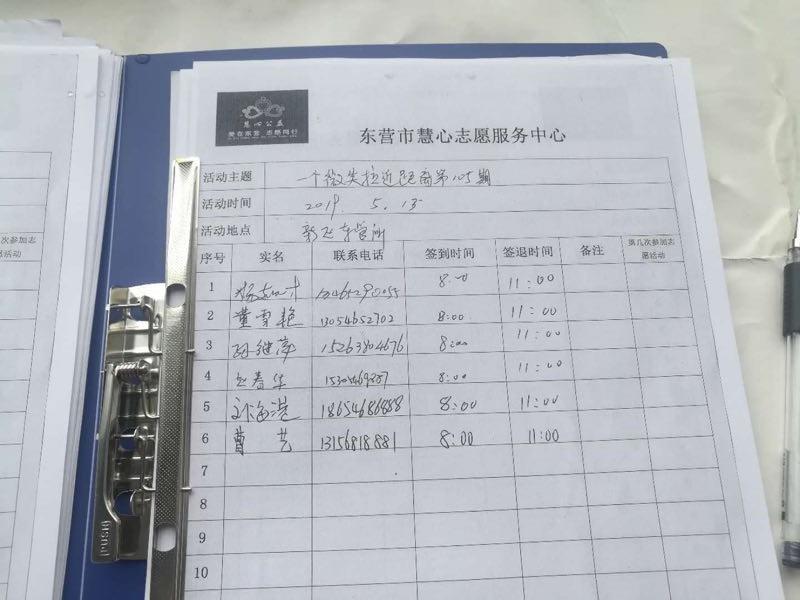 慧心公益
爱在东营 志愿同行
东营市慧心志愿服务中心
活动主题 一个微笑拉近距离第105期
活动时间 2019. 5. 13
活动地点 车管所
序号 实名 联系电话 签到时间 签退时间 备注 第几次参加志愿活动
1 8:00 11:00
2 董雪艳 13054652702 8:00 11:00
3 15263804676 8:00 11:00
4 赵春华 8:00 11:00
5 海港 18654686888 8:00 11:00
6 曹艺 13156818881 8:00 11:00
7
8
9
10
次参加志
愿活动